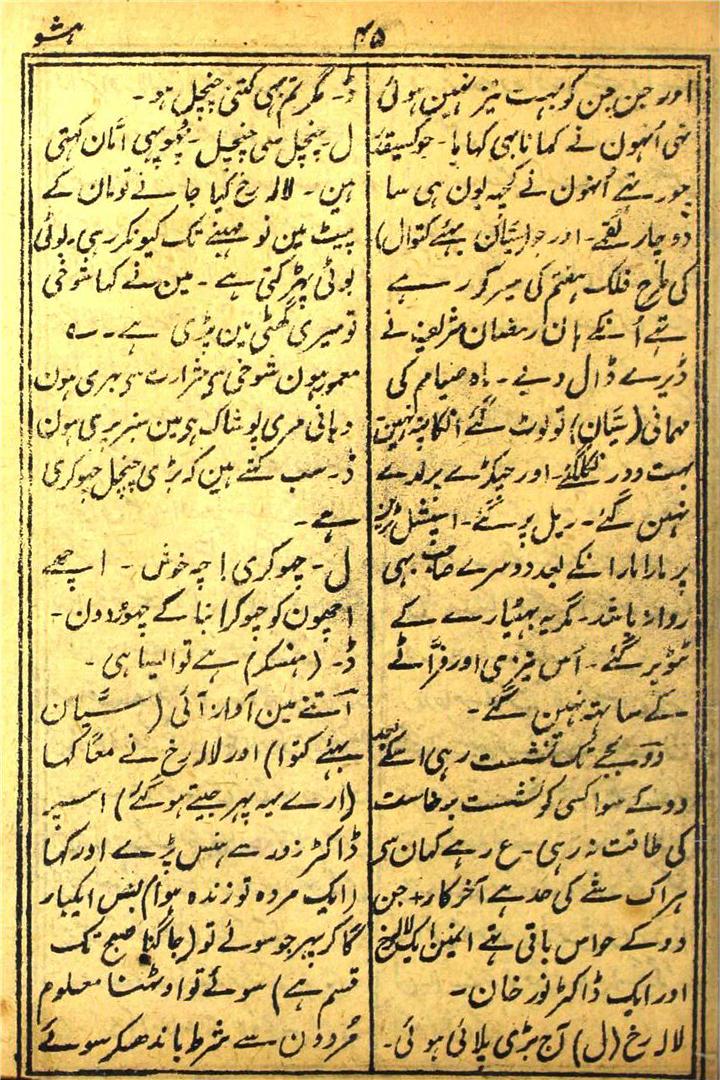 ہشو
۴۵
اور جن جن کو بہت تیز نہین ہوئی
تھی اُنہون نے کھانا بھی کھایا۔ جو کسیقدر
چور تھے اُنہون نے کچھ یون ہی سا
دو چار لقمے۔ اور جو (سیّان بھئے کتوال)
کی طرح فلک ہفتم کی سیر کر رہے
تھے اُنکے ہان رمضان شریف نے
ڈیرے ڈال دیے۔ ماہ صیام کی
مہمانی (سیّان) تو لوٹ گئے انکا پتہ نہین
بہت دور نکل گئے۔ اور چھکڑے پر لدے
نہین گئے۔ ریل پر گئے۔ اسپشل ٹرین
پر مارا مارا انکے بعد دوسرے صاحب بھی
روانہ باشد۔ مگر یہ بھٹیارے کے
ٹٹو پر گئے۔ اُس تیزی اور فرّاٹے
کے ساتھ نہین گئے۔
دو بجے تک نشست رہی اسکے بعد
دو کے سوا کسی کو نشست برخاست
کی طاقت نہ رہی۔ ع رہے کہان سے
ہر اک شے کی حد ہے آخر کار + جن
دو کے حواس باقی تھے انمین ایک لالہ رخ
اور ایک ڈاکٹر نور خان۔
لالہ رخ (ل) آج بڑی پلائی ہوئی۔
ڈ۔ مگر تم بھی کتنی چنچل ہو۔
ل۔ چنچل سی چنچل۔ پھوپھی امّان کہتی
ہین۔ لالہ رخ کیا جانے تو مان کے
پیٹ مین نو مہینے تک کیونکر رہی۔ بوٹی
بوٹی پھڑکتی ہے۔ مین نے کہا شوخی
تو میری گھٹی مین پڑی ہے۔ ؎
معمور ہون شوخی سے شرارت سے بھری ہون
دھانی مری پوشاک ہے مین سبز پری ہون
ڈ۔ سب کہتے ہین کہ بڑی چنچل چھوکری
ہے۔
ل۔ چھوکری! چہ خوش۔ اچھے
اچھون کو چھوکرا بنا کے چھوڑ دون۔
ڈ۔ (ہنسکر) ہے تو ایسا ہی۔
اتنے مین آواز آئی (سیّان
بھئے کتوا) اور لالہ رخ نے معاً کہا
(ارے یہ پھر جیتے ہو گئے) اسپر
ڈاکٹر زور سے ہنس پڑے اور کہا
(ایک مردہ تو زندہ ہوا) بس ایکبار
گا کر پھر جو سوئے تو (جاگنا صبح تک
قسم ہے) سوئے تو اوٹھنا معلوم
مُردون سے شرط باندھکر سوئے